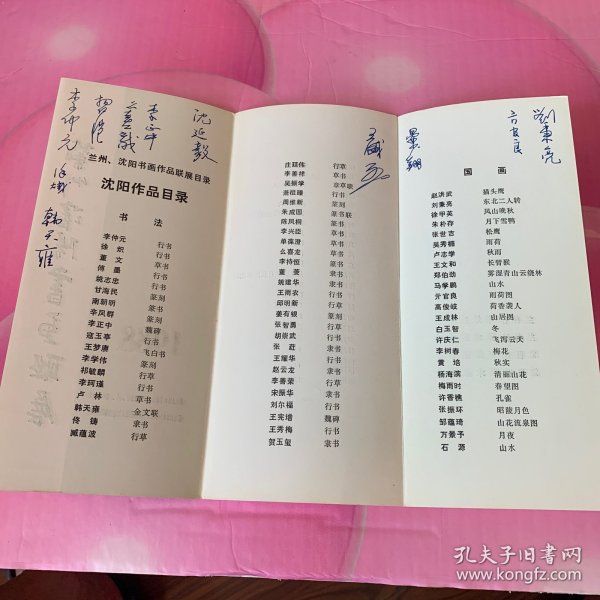 沈延毅
李正中
李仲元
徐炽
韩天雍
兰州、沈阳书画作品联展目录
沈阳作品目录
书 法
李仲元 行书
徐 炽 行书
董 文 行草
傅 墨 行书
姚志忠 行书
甘海民 篆刻
南朝明 篆刻
辛凤群 篆刻
李正中 魏碑
寇玉亭 飞白书
王梦赓 篆刻
李学伟 行书
祁毓麟 行草
李珂瑾 行书
卢 林 草书
韩天雍 金文联
佟 铸 隶书
臧蕴波 行草
庄廷伟 行草
李善祥 草书
吴振学 草章联
湛祖臻 行草
周维新 篆刻
朱成国 篆书联
陈凤桐 篆刻
李兴臣 草书
单葆澄 行草
么喜龙 行草
李持恒 行草
董 菱 行草
姚建华 行草
王雨农 行草
邱明新 篆刻
姜有银 篆刻
张智勇 隶书
胡崇武 隶书
张 赶 行草
王耀华 隶书
赵云龙 行草
李善荣 行草
宋振华 行草
刘尔福 行书
王宪增 魏碑
王秀梅 行书
贺玉玺 隶书
劉秉亮
国 画
赵洪武 猫头鹰
刘秉亮 东北二人转
徐甲英 凤山晚秋
朱朴存 月下雪鸭
张世吉 松鹰
吴秀楣 雨荷
卢志学 秋雨
王文和 长臂猴
郑伯劲 雾湿青山云绕林
马学鹏 山水
亓官良 雨荷图
高俊岐 荷香袭人
王成林 山居图
白玉智 冬
许庆仁 飞泻云天
李树春 梅花
黄 培 秋实
杨海滨 清丽山花
梅雨时 春望图
许香樵 孔雀
张振环 昭陵月色
邹蕴琦 山花流泉图
万景予 月夜
石 源 山水
孔夫子旧书网
www.kongfz.com